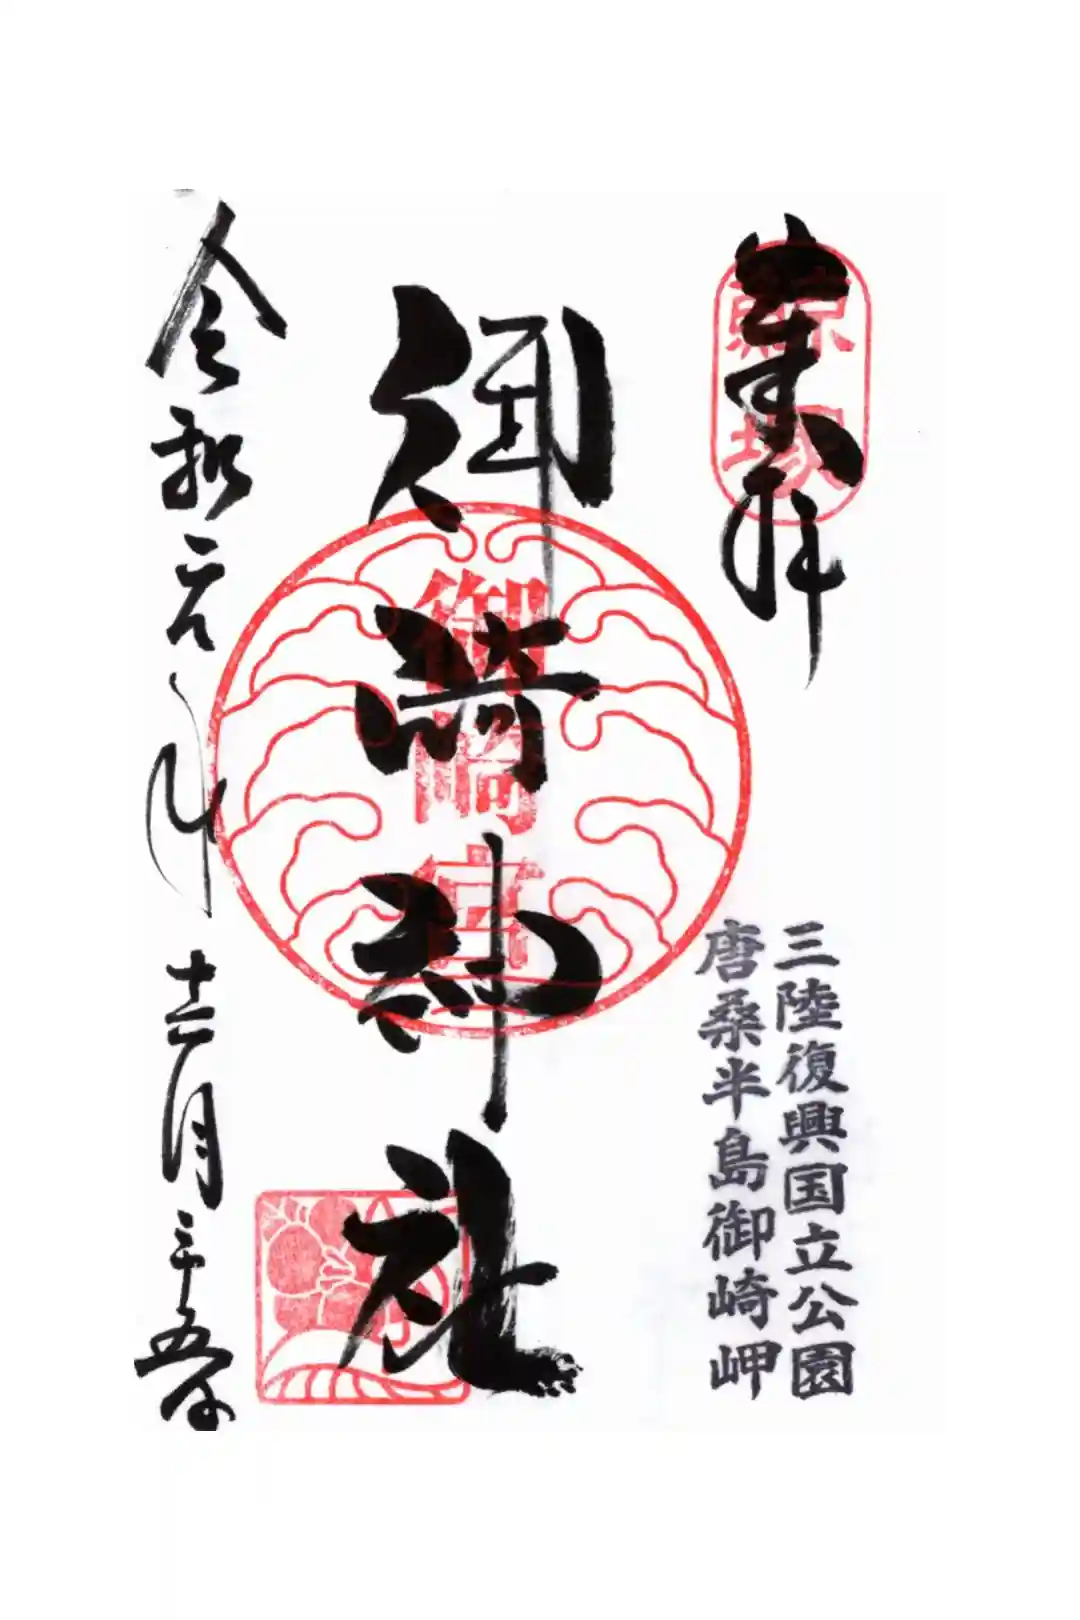 奉拝
鯨塚
三陸復興国立公園
唐桑半島御崎岬
御崎神社
御崎宮
令和元年十二月二十五日